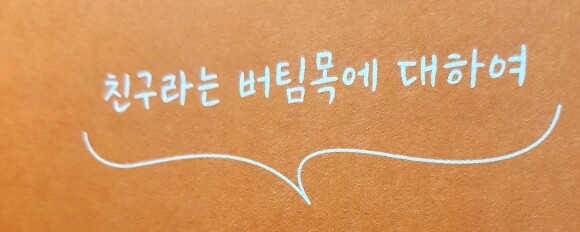 친구라는 버팀목에 대하여